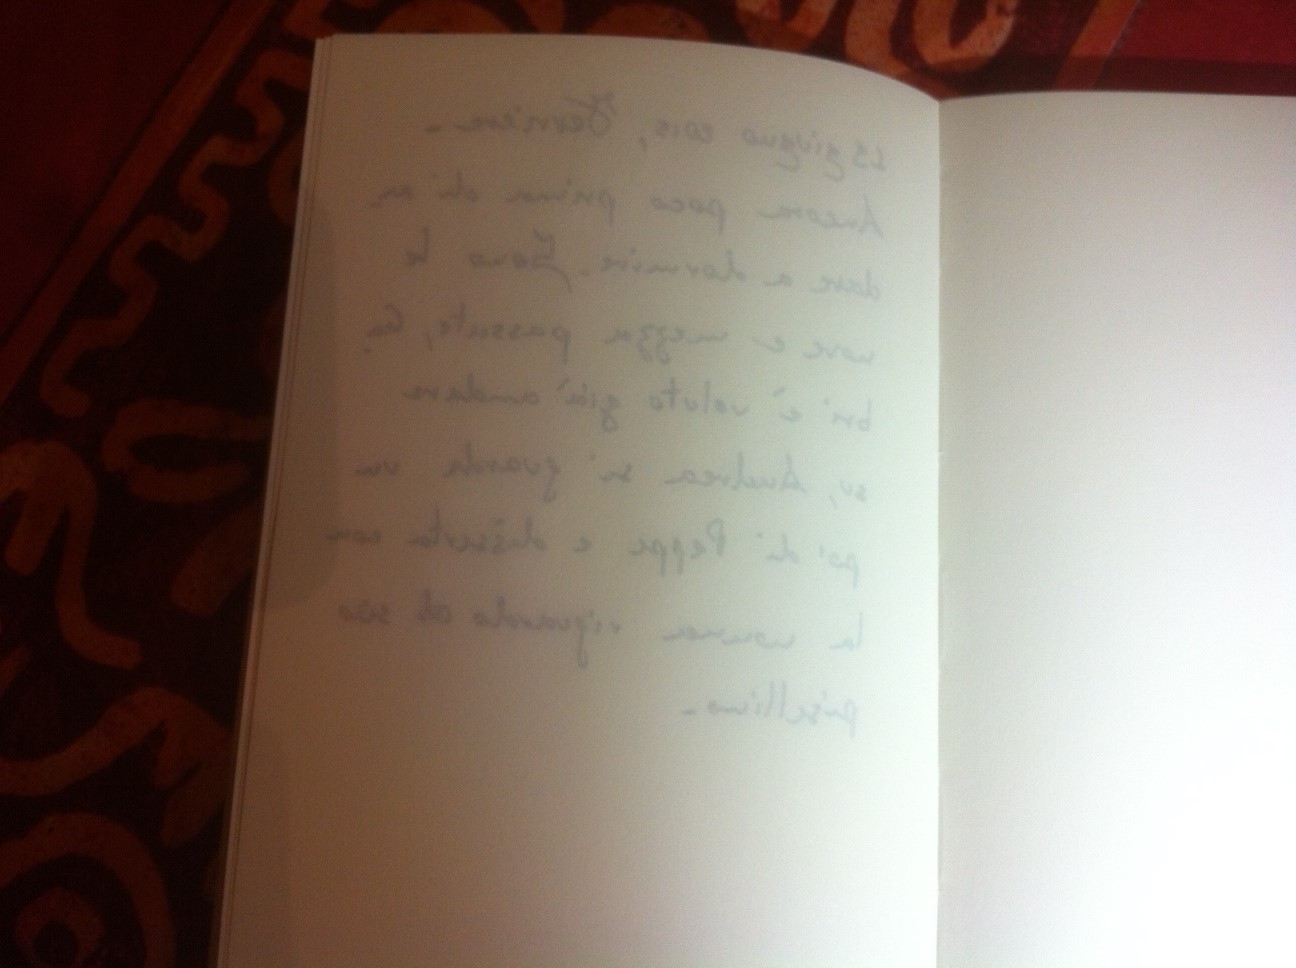 giugno 2015,
Ancora poco prima di an
dare a dormire. Sono le
nove e mezza passate, Ga
bri è voluto già andare
su, Andrea si guarda un
po' di Peppe e disserta con
la nonna riguardo al suo
pisellino.